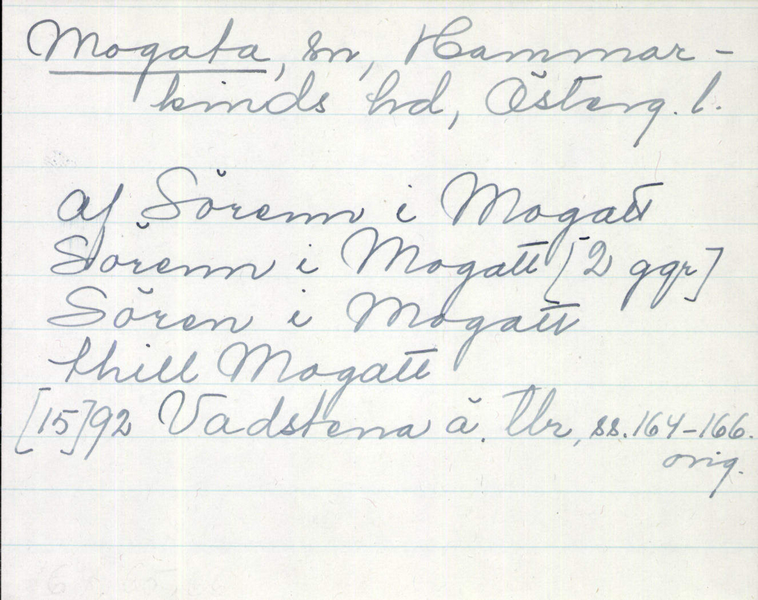 Mogata, sn, Hammar-
kinds hd, Österg. l.
af Sörenn i Mogatt
Sörenn i Mogatt [2 ggr]
Sören i Mogatt
thill Mogatt
[15]92 Vadstena ä. Tbr, ss. 164-166.
orig.